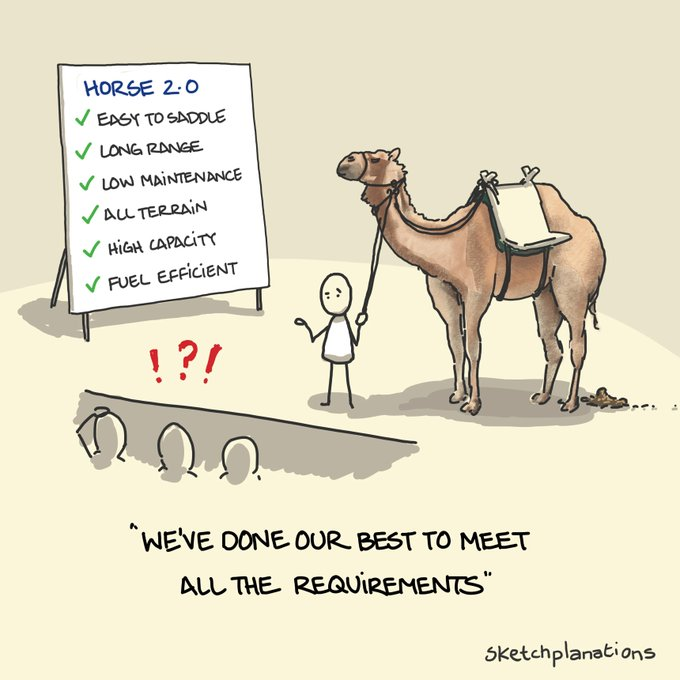 HORSE 2.0
✓ EASY TO SADDLE
✓ LONG RANGE
✓ LOW MAINTENANCE
✓ ALL TERRAIN
✓ HIGH CAPACITY
✓ FUEL EFFICIENT
!?!
"WE'VE DONE OUR BEST TO MEET
ALL THE REQUIREMENTS"
sketchplanations